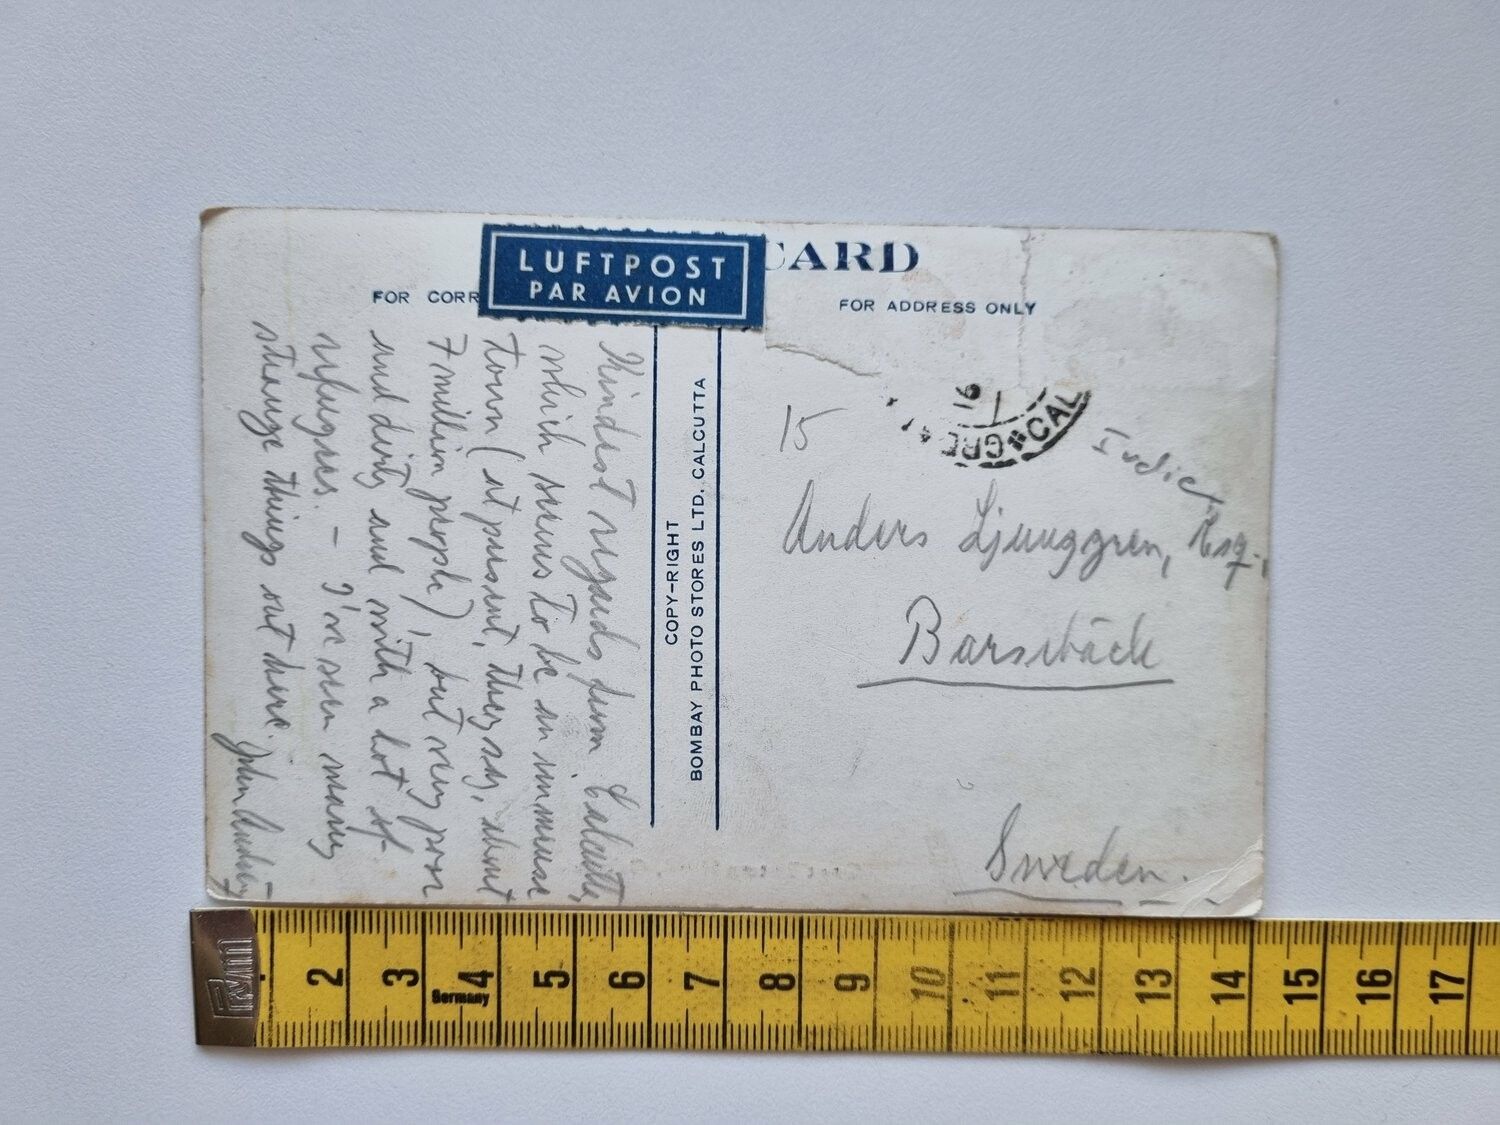 LUFTPOST
PAR AVION
CARD
FOR CORR
FOR ADDRESS ONLY
Kindest regards from Calcutta,
which seems to be an immense
town (at present, they say, about
7 million people), but very poor
and dirty and with a lot of
refugees. – I've seen many
strange things out here.
John
COPY-RIGHT
BOMBAY PHOTO STORES LTD. CALCUTTA
15
CAL
16
Anders Ljunggren, Esq.,
Barsebäck
Sweden.
Prym
Germany
2 3 4 5 6 7 8 9 10 11 12 13 14 15 16 17